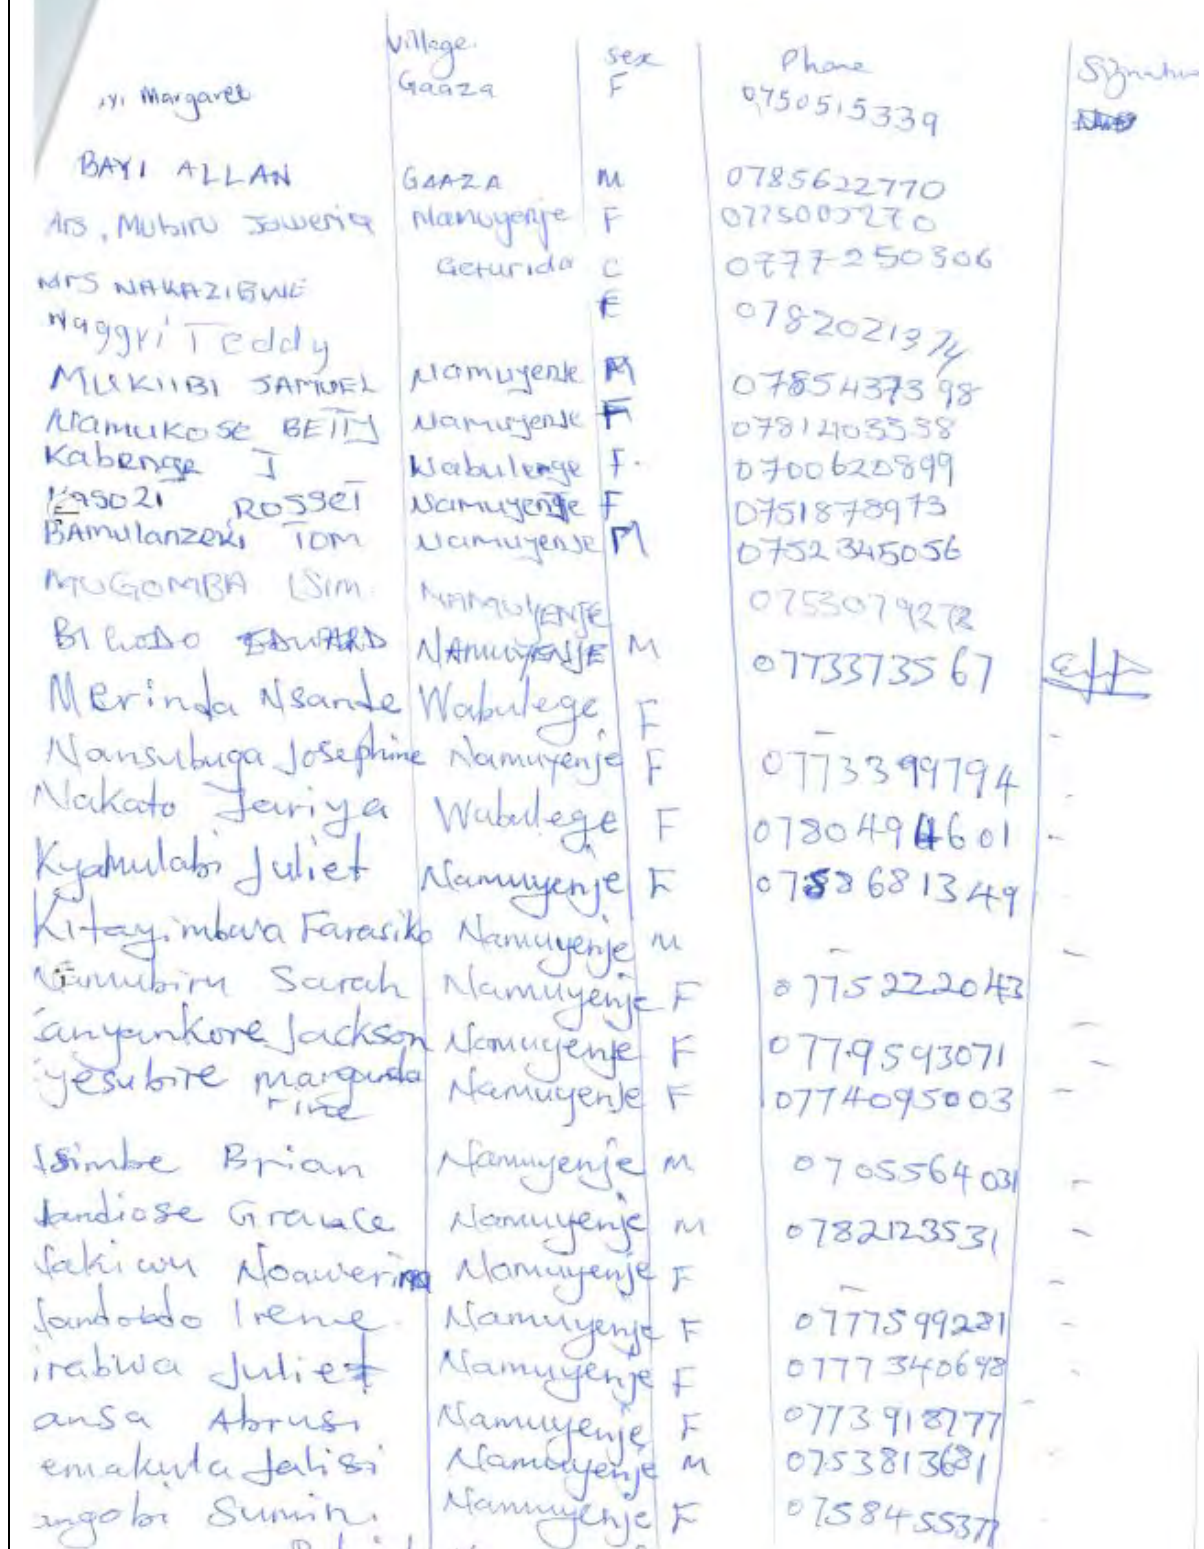 Village. sex Phone Signatur
yi Margaret Gaaza F 0750515339
BAYI ALLAN GAAZA M 0785622770
Mubiru Joweria Namuyenje F 0775005270
Geturida C 0777250306
MRS NAKAZIBWE F
Naggyi Teddy 0782021374
MUKIIBI SAMUEL Namuyenje M 0785437398
Namukose BETTY Namuyenje F 0781403538
Kabenge J Wabulenge F. 0700620899
Kasozi ROSSET Namuyenje F 0751878973
BAmulanzeki TOM Namuyenje M 0752345056
MUGOMBA ISIM NAMUYENJE 0753079278
EDWARD NAMUYENJE M 0773373567
Merinda Nsande Wabulege F -
Nansubuga Josephine Namuyenje F 0773399794 -
Nakato Jariya Wabulege F 0780494601 -
Kyamulabi Juliet Namuyenje F 0788681349 -
Kitayimbwa Farasiko Namuyenje M - -
Namubiru Sarah Namuyenje F 0775222043
anyankore Jackson Namuyenje F 0779593071 -
yesubire Namuyenje F 0774095003 -
rine
Isimbe Brian Namuyenje M 0705564031 -
Grauce Namuyenje M 0782123531 -
Namuyenje F - -
Irene Namuyenje F 0777599281 -
irabwa Juliet Namuyenje F 0777340698 -
ansa Abrusi Namuyenje F 0773918777 -
emakula Jalisi Namuyenje M 0753813681 -
ngobi Sumin. Namuyenje F 0758455377 -